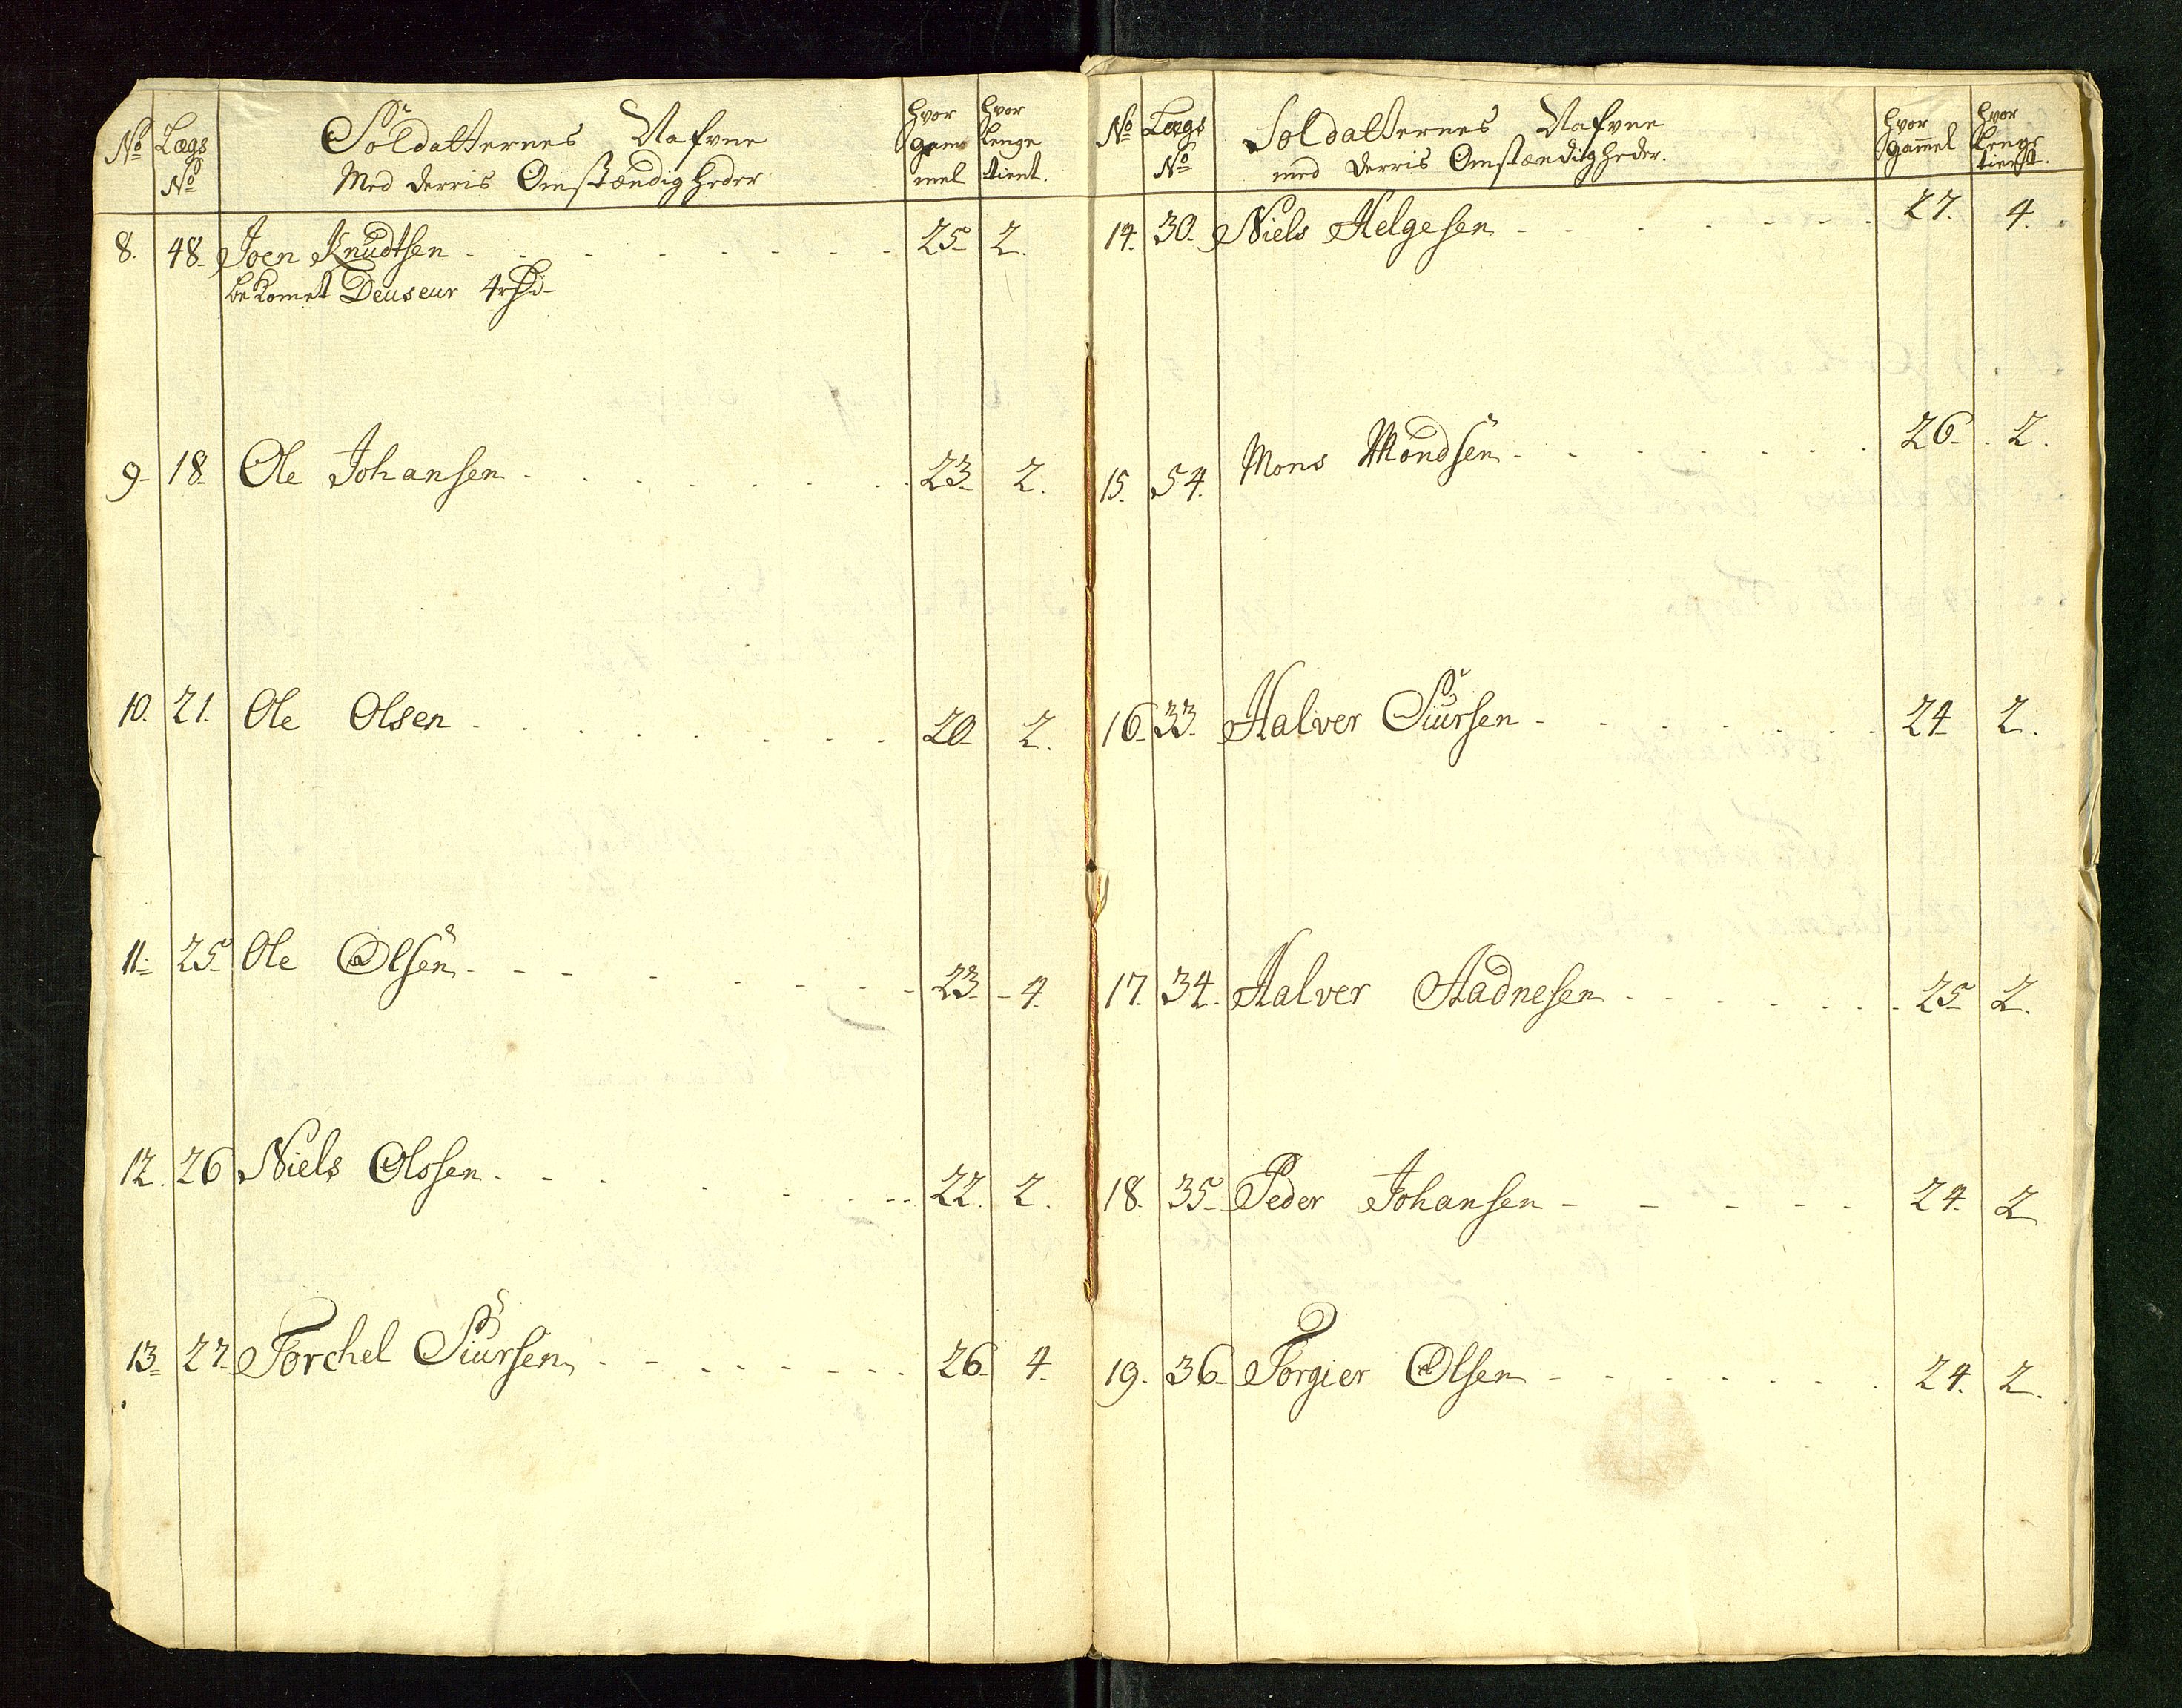 No Lægs No Soldatternes Nafvne Med derris Omstændigheder hvor gammel hvor lenge tient.
8. 48. Joen Knudtsen 25 2.
bekomet Deuseur 4
9. 18. Ole Johansen 23 2.
10. 21. Ole Olsen 20 2.
11. 25 Ole Olsen 23 4.
12. 26 Niels Olssen 22. 2.
13. 27. Torchel Siursen 26 4.
No Lægs No Soldatternes Nafvne med derris Omstændigheder. hvor gamel hvor lenge tienst.
14. 30. Niels Helgesen 27. 4.
15. 54. Mons Mondsen 26 2.
16. 33. Halver Siursen 24 2.
17. 34. Halver Aadnesen 25 2.
18. 35. Peder Johansen 24. 2
19. 36. Torgier Olsen 24. 2.